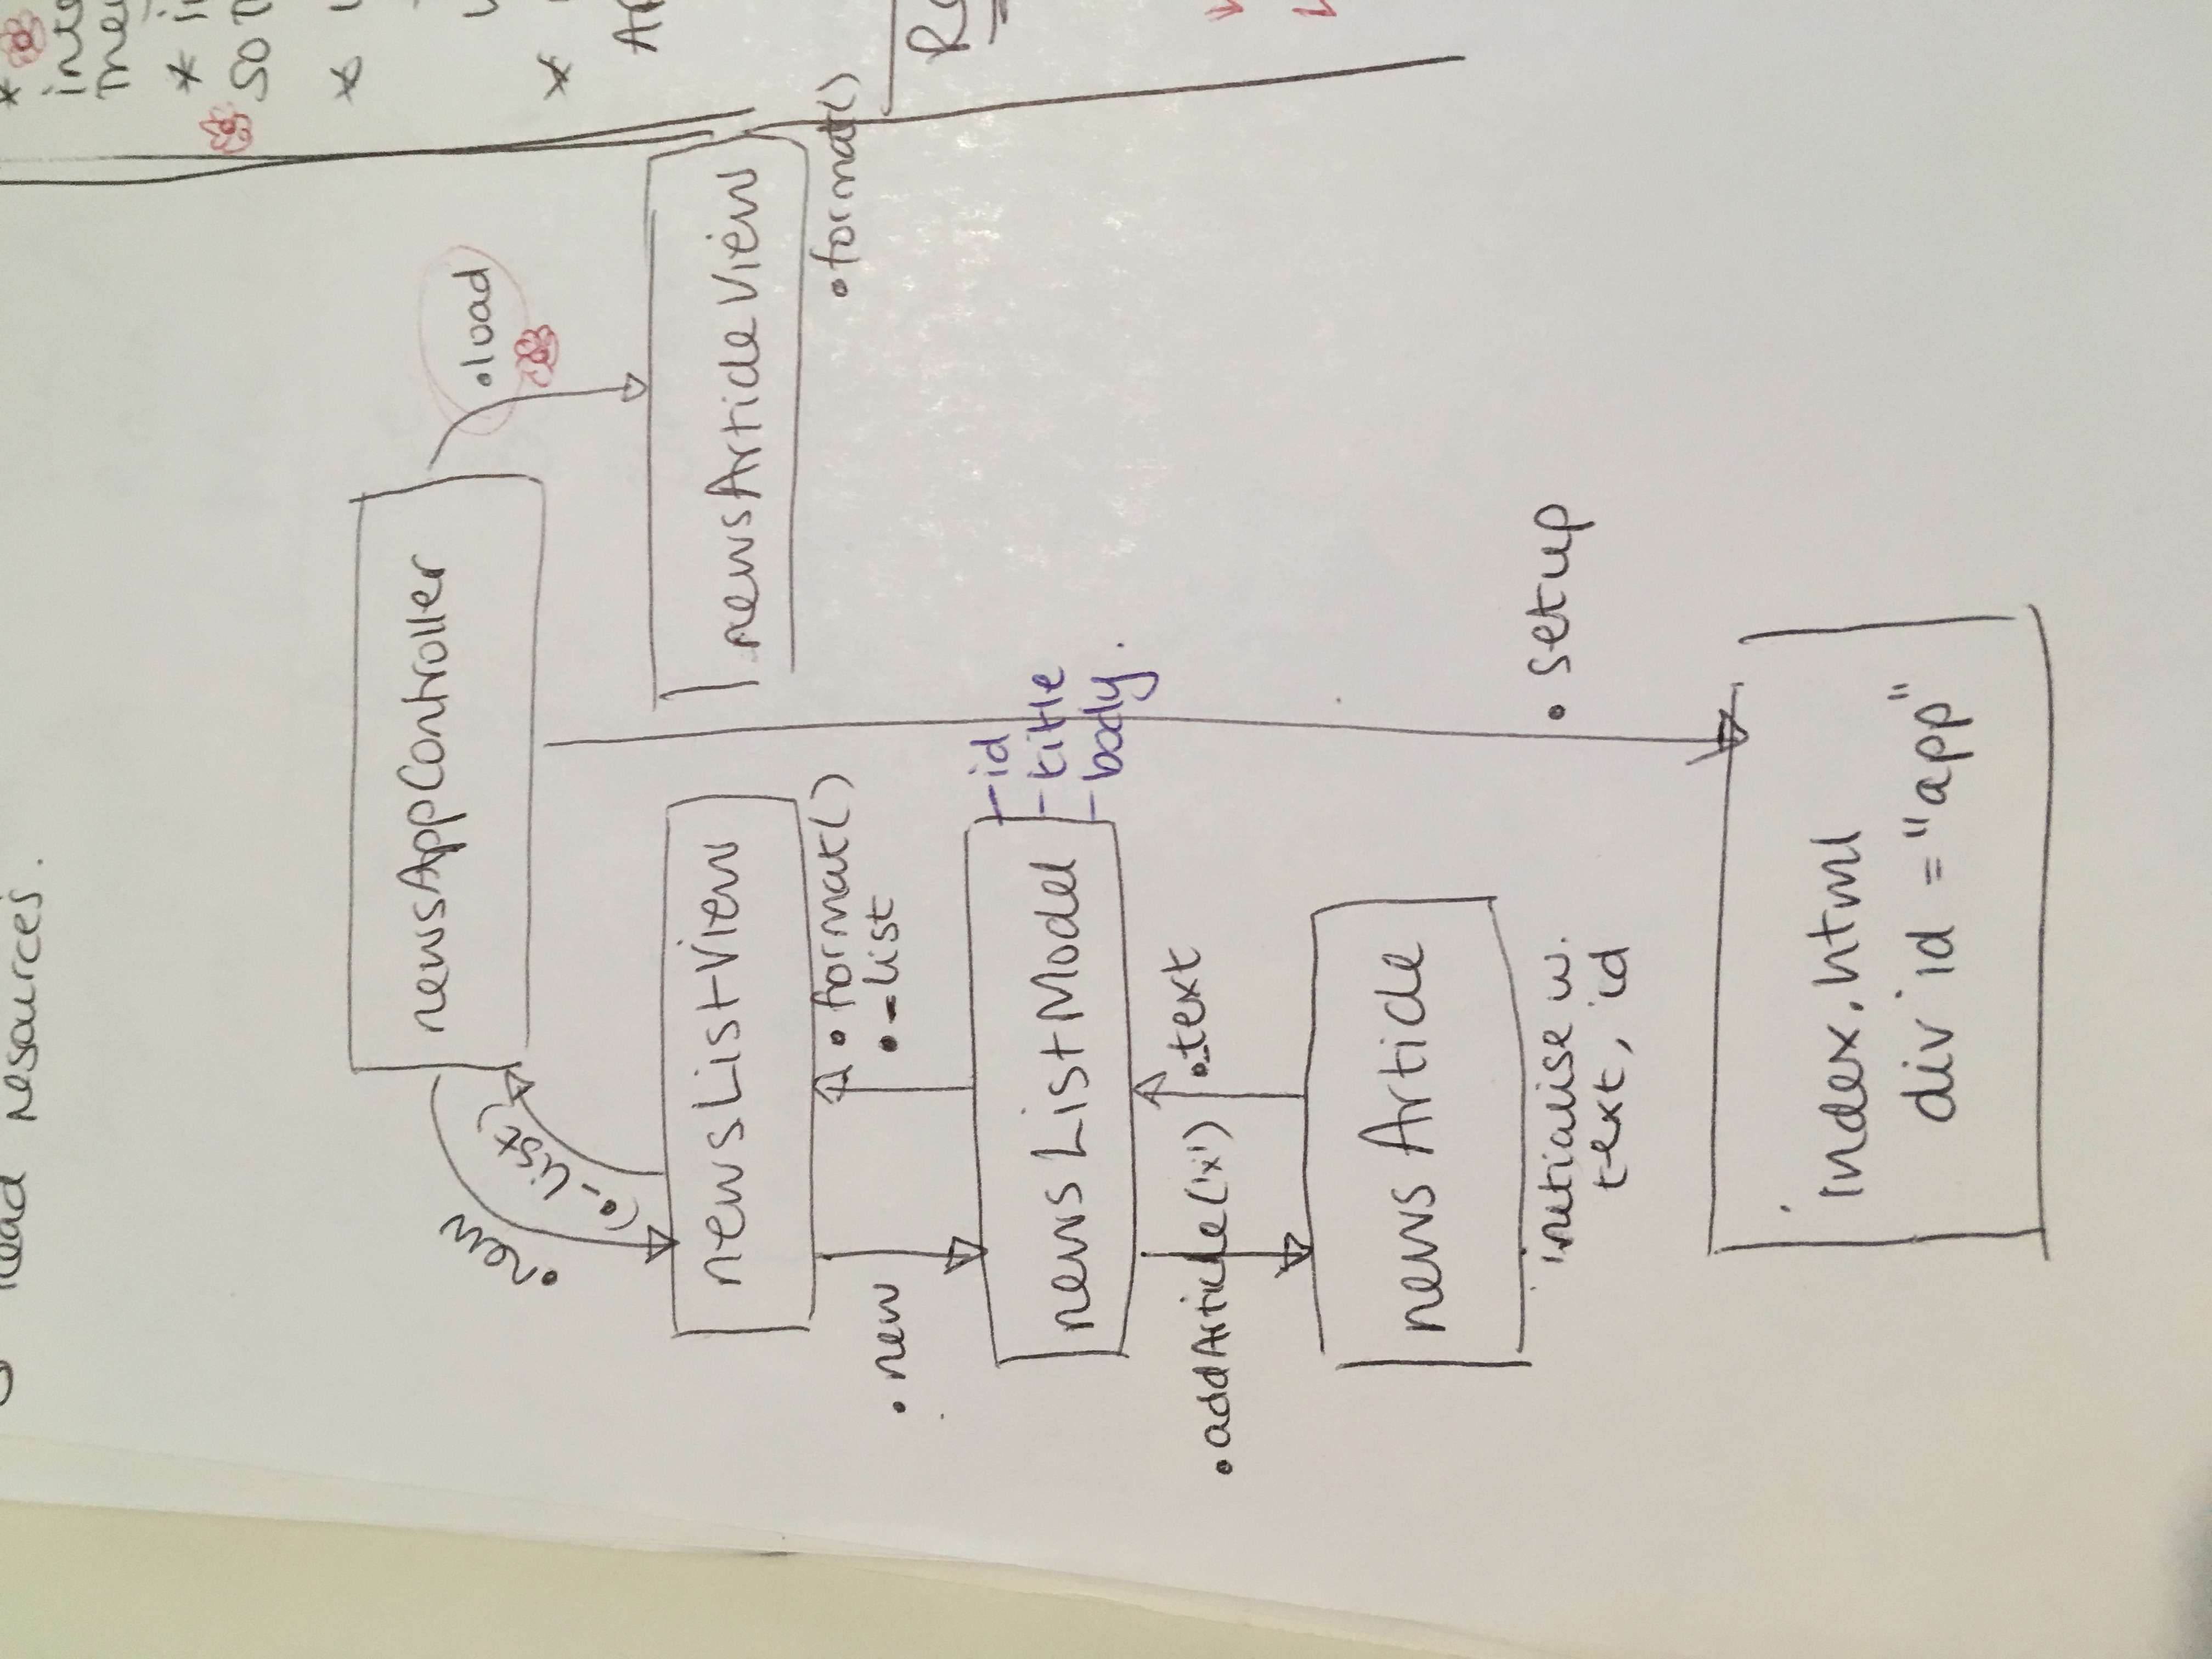 Read resources.
newsAppController
.new
(._list)
.load
newsListView
newsArticleView
.format()
._list
.format()
.new
newsListModel
-id
-title
-body.
.addArticle('x')
._text
newsArticle
initialise w.
text, id
. setup
index.html
div id = "app"
*
*
so
*
*